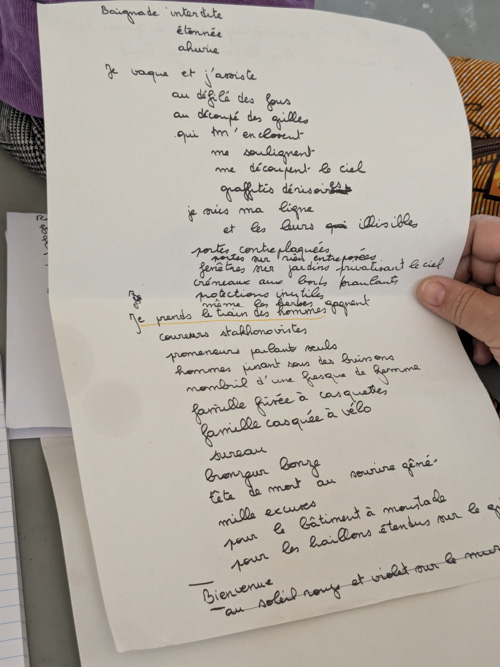 Baignade interdite
étonnée
ahurie
Je vaque et j'assiste
au défilé des fous
au découpé des grilles
qui m'enclosent
me soulignent
me découpent le ciel
graffitis dérisoires
je suis ma ligne
et les leurs illisibles
portes contreplaquées
portes sur rien entreposées
fenêtres sur jardins privatisant le ciel
créneaux aux bords branlants
protections inutiles
même les herbes gagnent
Je prends le train des hommes
coureurs stakhanovistes
promeneurs parlant seuls
hommes pissant sous des buissons
nombril d'une fresque de femme
famille à casquettes
famille casquée à vélo
sureau
bronzeur bonze
tête de mort au sourire gêné
mille excuses
pour le bâtiment à moustade
pour les haillons étendus sur le
Bienvenue
au soleil rouge et violet sur le mur